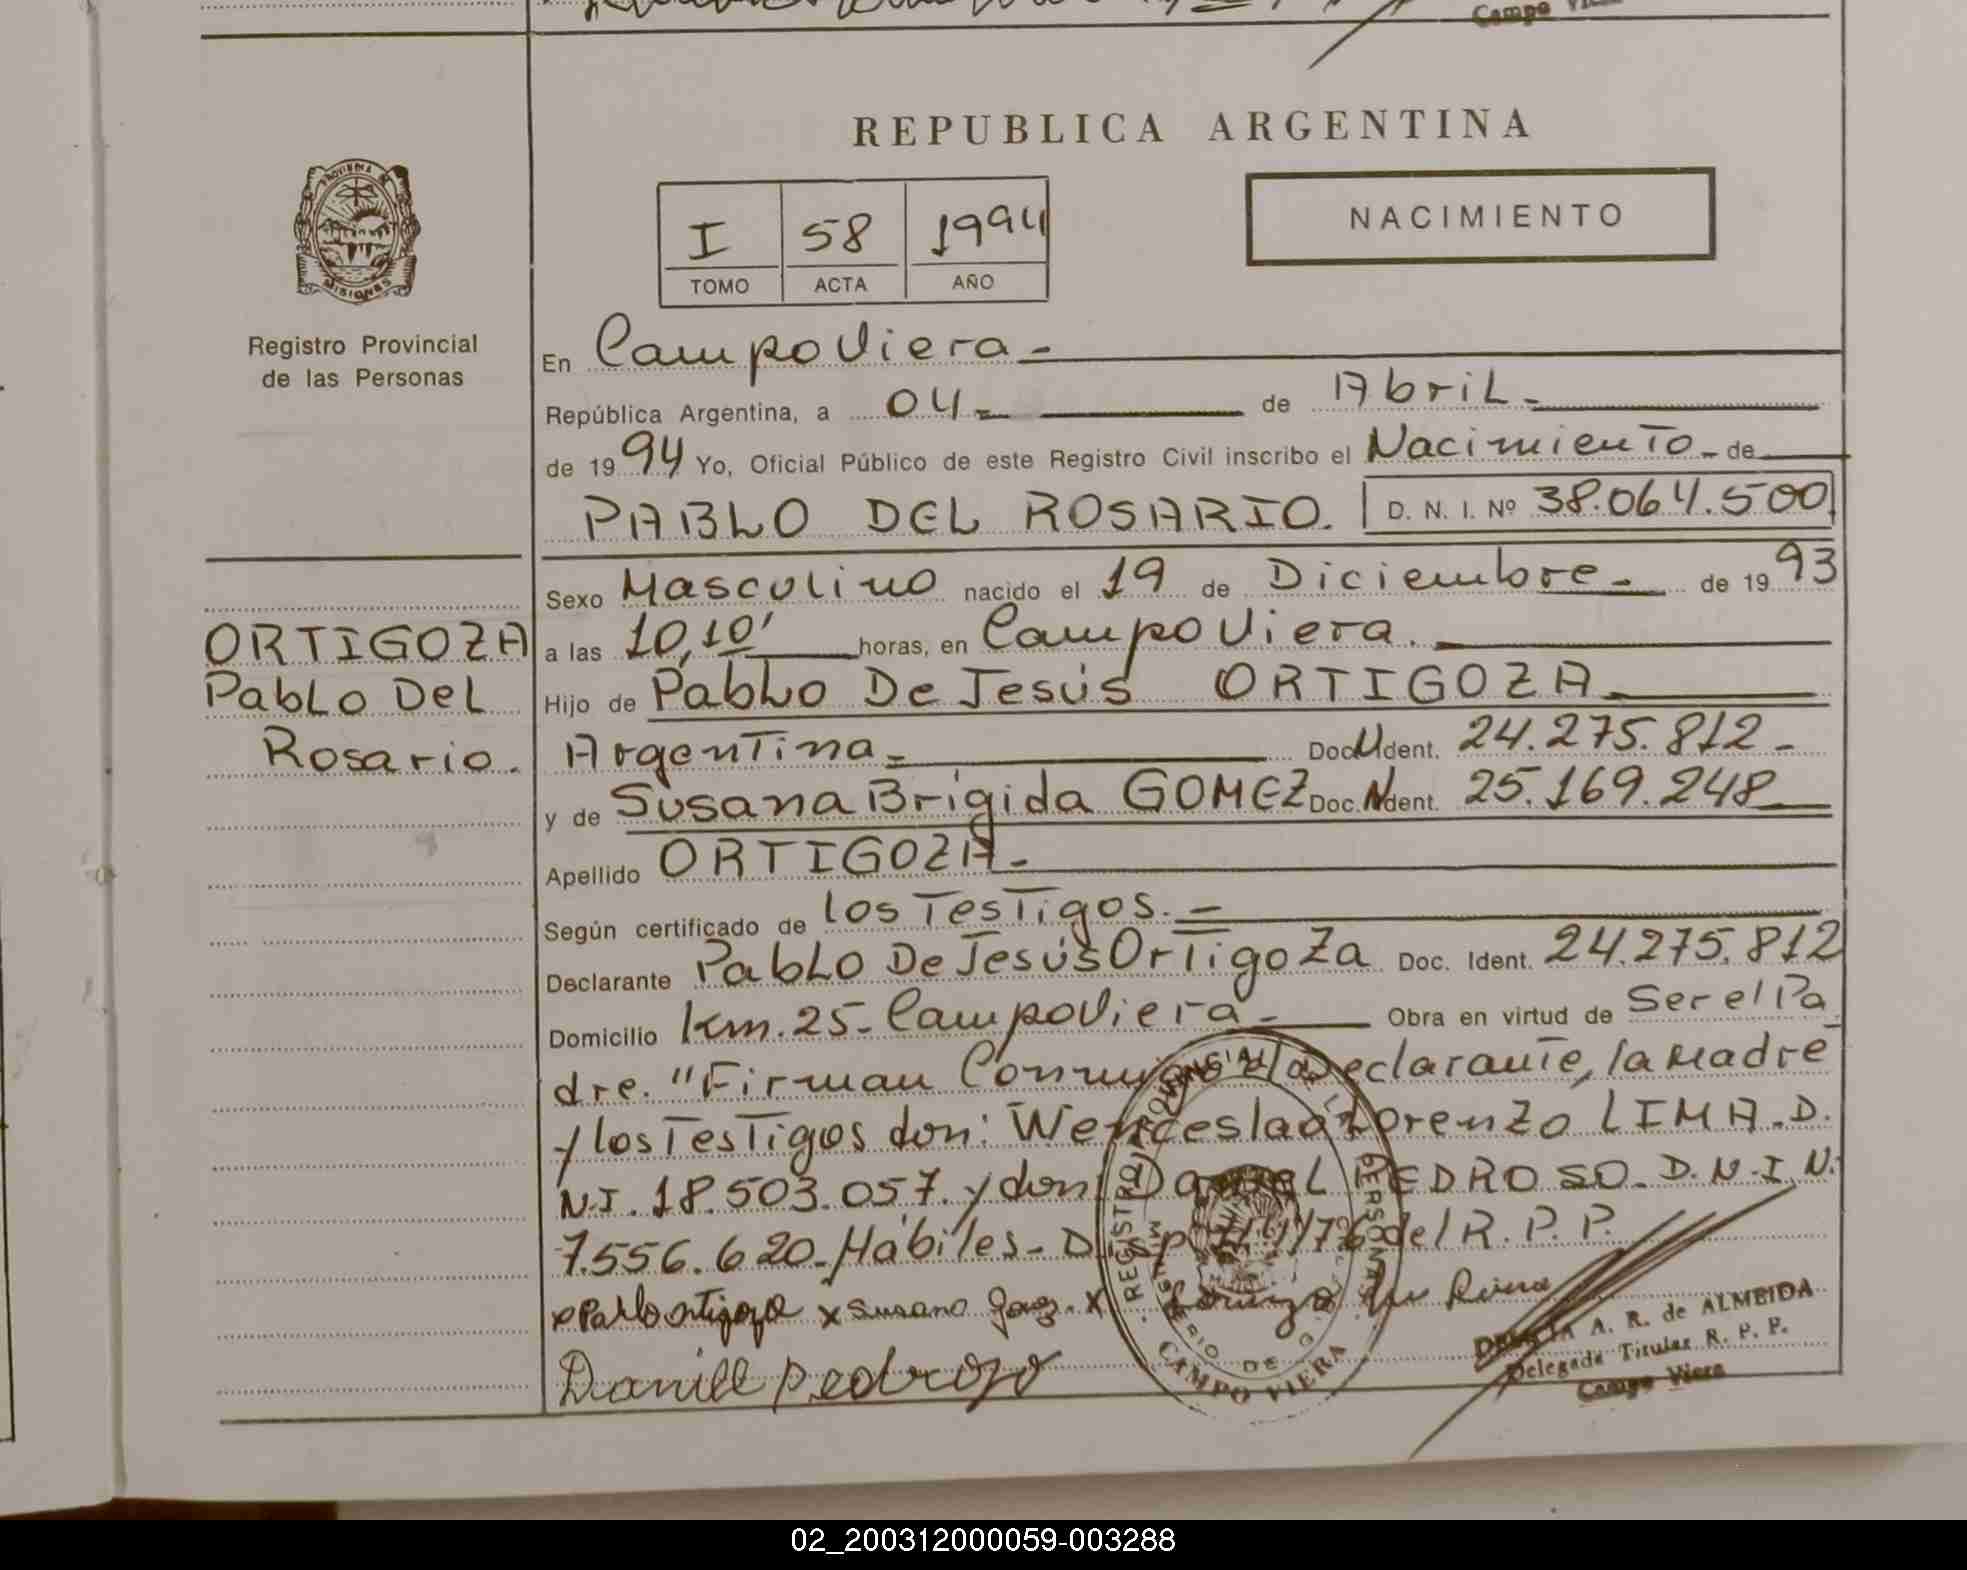 Campo Viera
REPUBLICA ARGENTINA
PROVINCIA DE
MISIONES
I 58 1994
TOMO ACTA AÑO
NACIMIENTO
Registro Provincial
de las Personas
En Campo Viera -
República Argentina, a 04 - de Abril -
de 1994 Yo, Oficial Público de este Registro Civil inscribo el Nacimiento - de
PABLO DEL ROSARIO. D. N. I. Nº 38.064.500
Sexo Masculino nacido el 19 de Diciembre - de 1993
a las 10,10' horas, en Campo Viera.
Hijo de Pablo De Jesús ORTIGOZA -
Argentina - Doc. Ident. 24.275.812 -
y de Susana Brígida GOMEZ Doc. Ident. 25.169.248
Apellido ORTIGOZA -
Según certificado de los Testigos. -
Declarante Pablo De Jesús Ortigoza Doc. Ident. 24.275.812
Domicilio Km. 25 - Campo Viera - Obra en virtud de Ser el Pa
dre. "Firman Conmigo el Declarante, la Madre
y los Testigos don: Wenceslao Lorenzo LIMA. D.
N.I. 18.503.057. y don: Daniel PEDROSO. D.N.I.N.
7.556.620. Hábiles - Disp. /76 del R. P. P.
x Pablo ortigoza x Susana x
Daniel Pedrozo
ORTIGOZA
Pablo Del
Rosario.
REGISTRO PROVINCIAL DE LAS PERSONAS
CAMPO VIERA
A. R. de ALMEIDA
Delegada Titular R. P. P.
Campo Viera
02_200312000059-003288